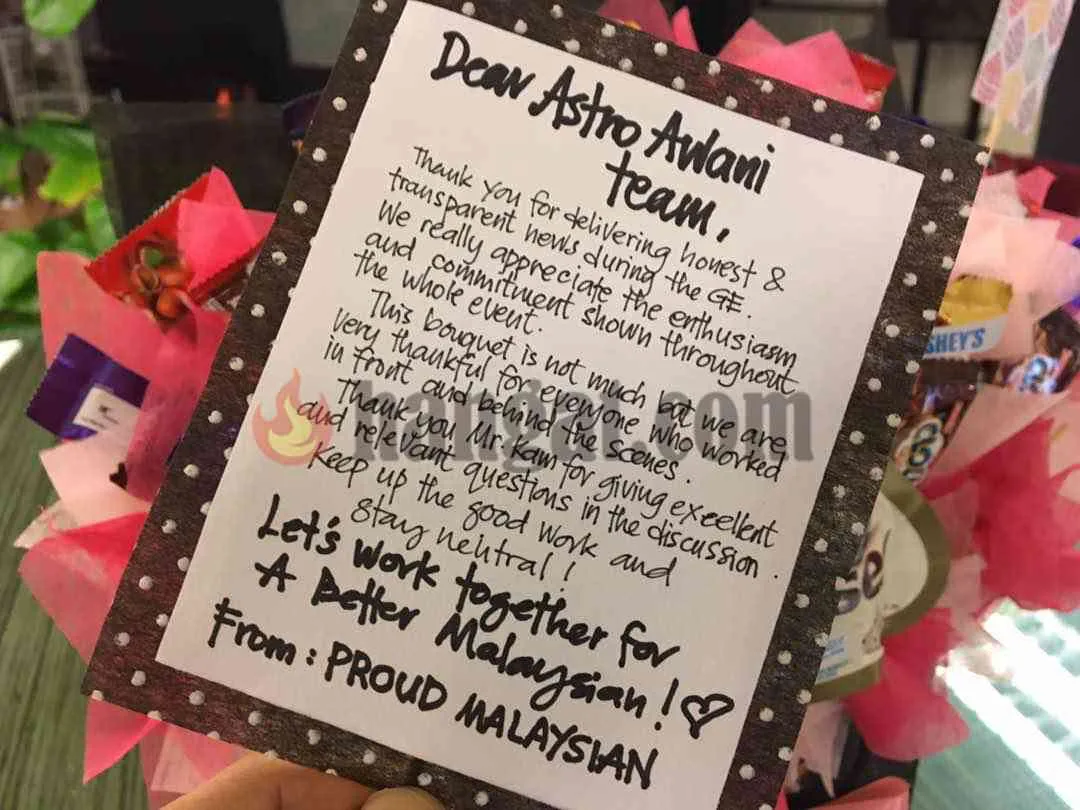 Dear Astro Awani
team,
Thank you for delivering honest &
transparent news during the GE.
We really appreciate the enthusiasm
and commitment shown throughout
the whole event.
This bouquet is not much but we are
very thankful for everyone who worked
in front and behind the scenes.
Thank you Mr. Kam for giving excellent
and relevant questions in the discussion.
Keep up the good work and
stay neutral!
Let's work together for
A Better Malaysian!
From: PROUD MALAYSIAN
hangat.com
HERSHEY'S